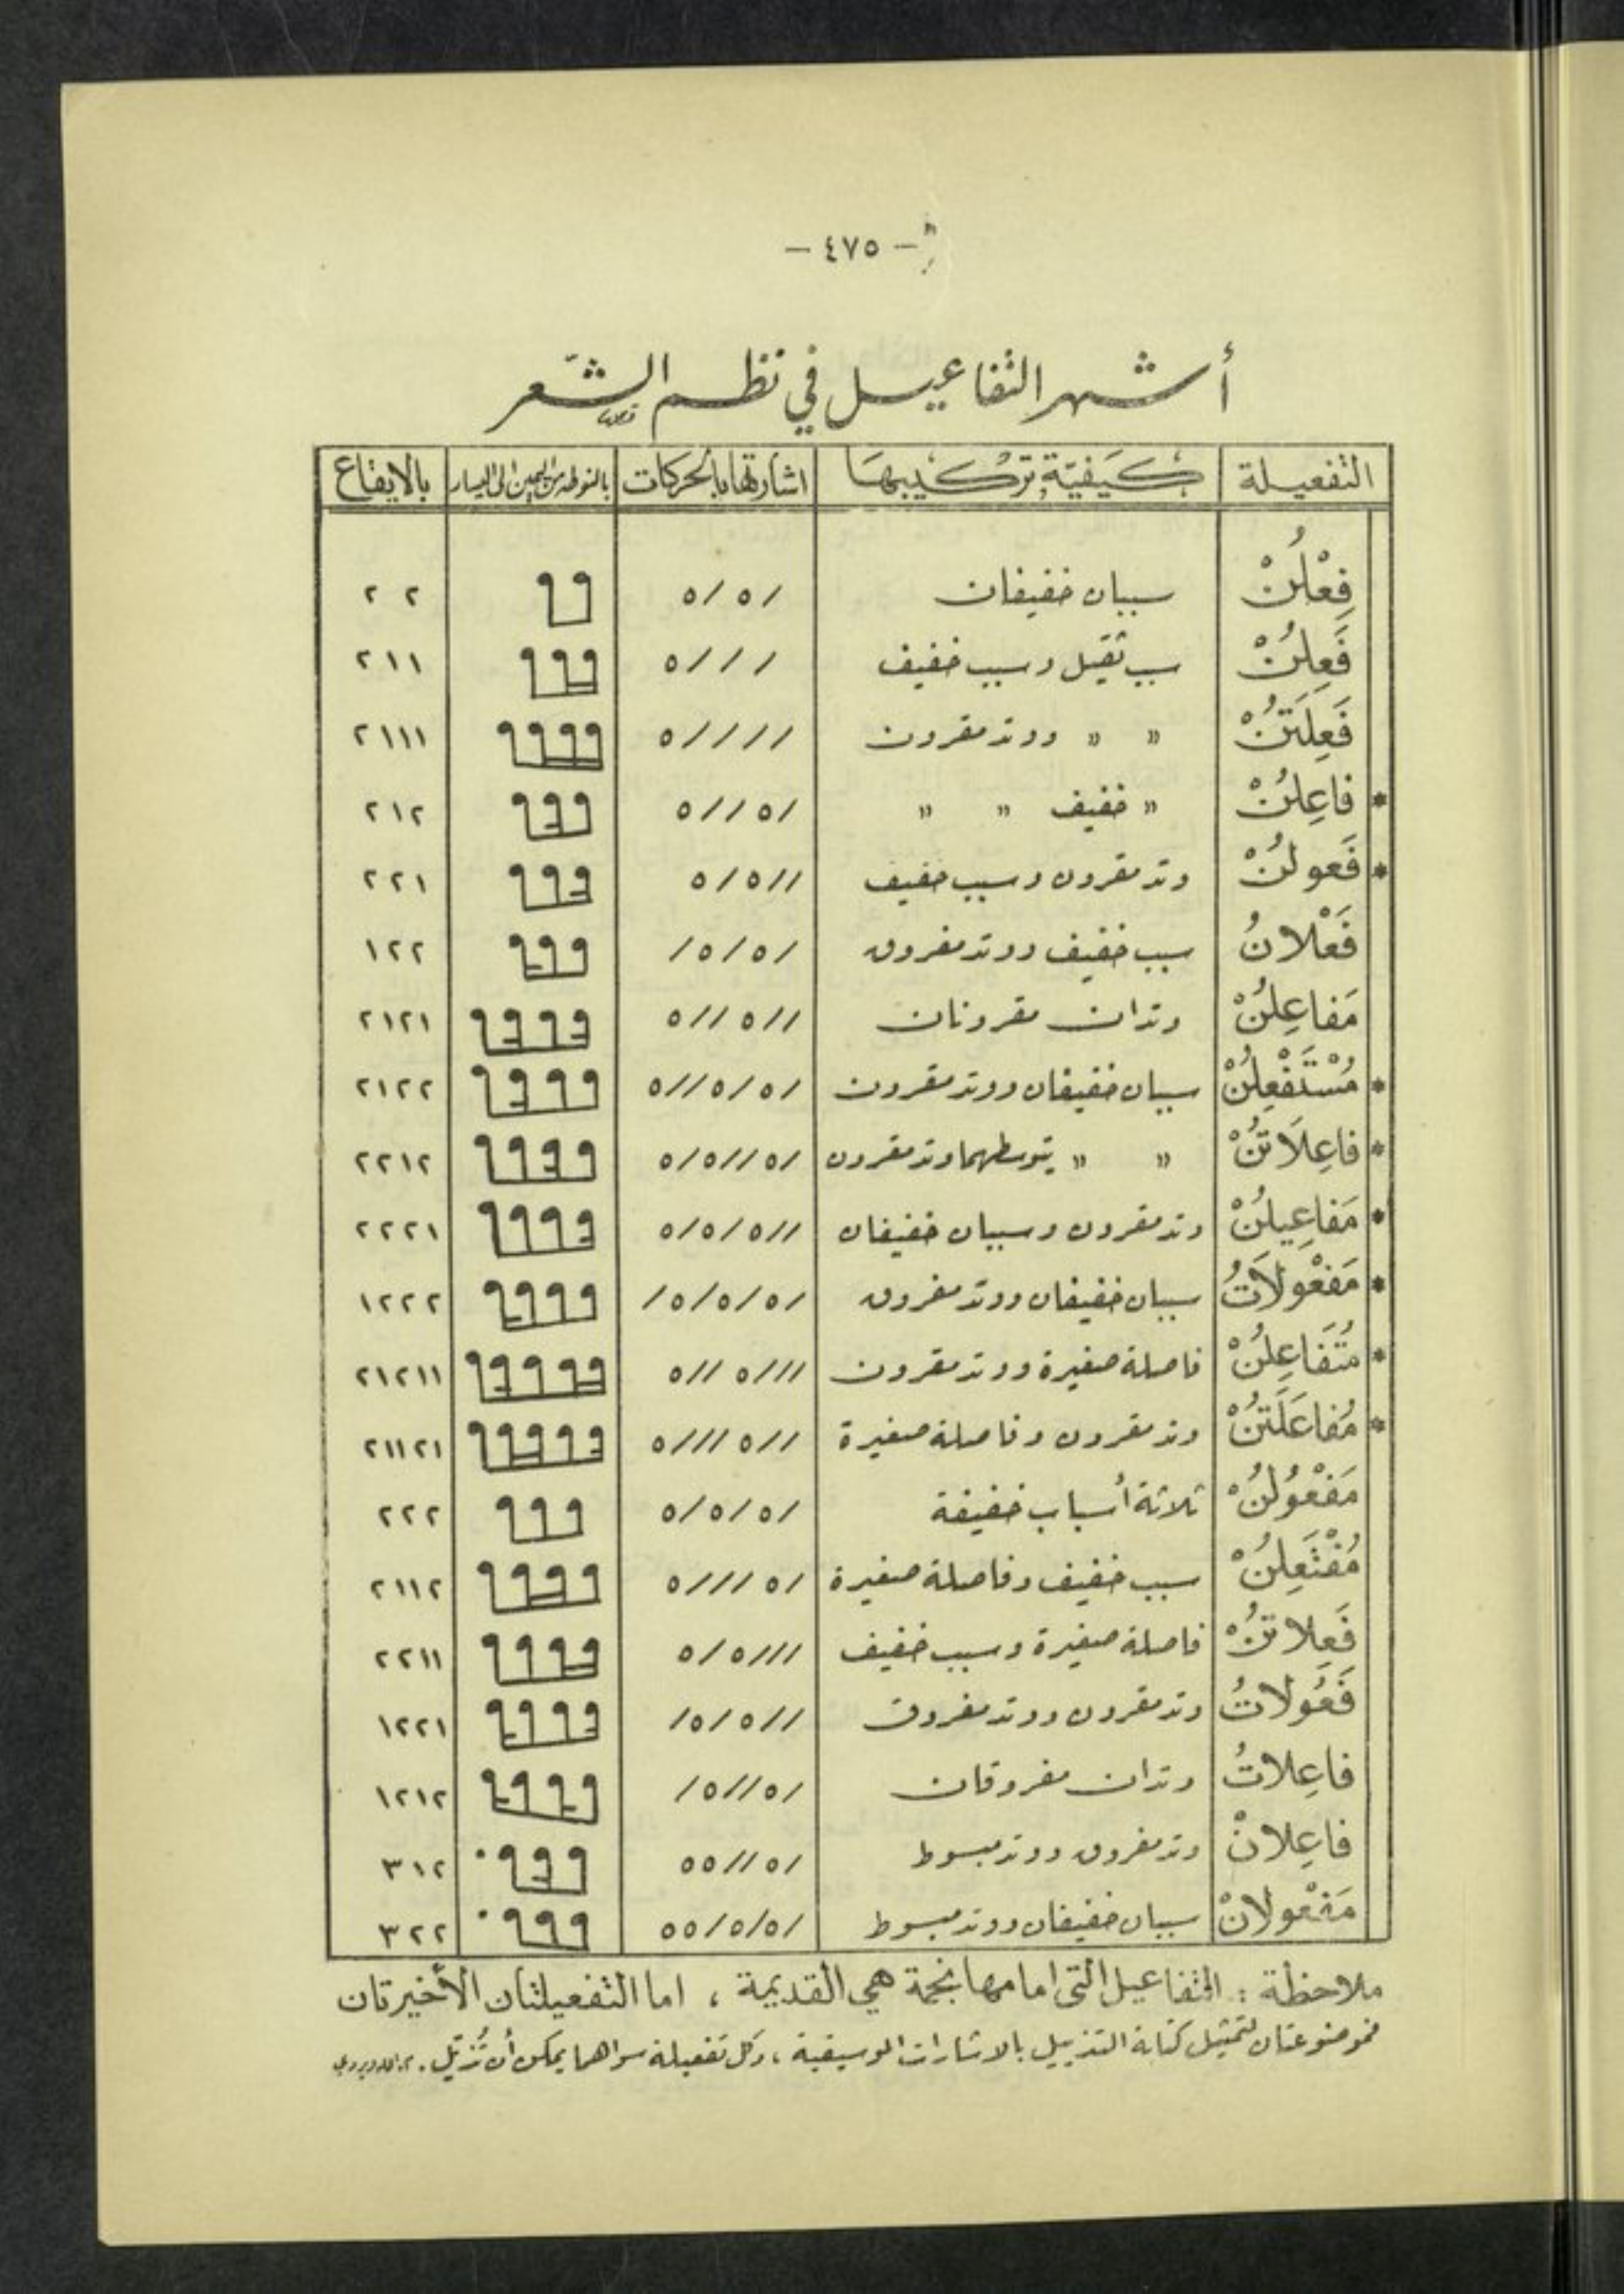 — ٤٧٥ —
أشهر التفاعيل في نظم الشّعر
التفعيلة كَيفيّة تركيبهَا اشارتها بالحركات بالنوطه من اليمين الى اليسار بالايقاع
فِعْلُنْ سببان خفيفان /٥/٥ ٢ ٢
فَعِلُنْ سبب ثقيل وسبب خفيف ///٥ ٢١١
فَعِلَتَنُْ " " ووتد مقرون ////٥ ٢١١١
* فاعِلُنْ " خفيف " " /٥//٥ ٢١٢
* فَعولُنْ وتد مقرون وسبب خفيف //٥/٥ ٢٢١
فَعْلانُ سبب خفيف ووتد مفروق /٥/٥/ ١٢٢
مَفاعِلُنْ وتدان مقرونان //٥//٥ ٢١٢١
* مُسْتَفْعِلُنْ سببان خفيفان ووتد مقرون /٥/٥//٥ ٢١٢٢
* فاعِلَاتُنْ " " يتوسطهما وتد مقرون /٥//٥/٥ ٢٢١٢
* مَفاعِيلُنْ وتد مقرون وسببان خفيفان //٥/٥/٥ ٢٢٢١
* مَفْعولَاتُ سببان خفيفان ووتد مفروق /٥/٥/٥/ ١٢٢٢
* مُتَفاعِلُنْ فاصلة صغيرة ووتد مقرون ///٥//٥ ٢١٢١١
* مُفاعَلَتُنْ وتد مقرون وفاصلة صغيرة //٥///٥ ٢١١٢١
مَفْعُولُنْ ثلاثة أسباب خفيفة /٥/٥/٥ ٢٢٢
مُفْتَعِلُنْ سبب خفيف وفاصلة صغيرة /٥///٥ ٢١١٢
فَعِلاتُنْ فاصلة صغيرة وسبب خفيف ///٥/٥ ٢٢١١
فَعُولاتُ وتد مقرون ووتد مفروق //٥/٥/ ١٢٢١
فاعِلاتُ وتدان مفروقان /٥//٥/ ١٢١٢
فاعِلانْ وتد مفروق ووتد مبسوط /٥//٥٥ ٣١٢
مَفْعولانْ سببان خفيفان ووتد مبسوط /٥/٥/٥٥ ٣٢٢
ملاحظة : التفاعيل التى امامها نجمة هي القديمة ، اما التفعيلتان الأخيرتان
فموضوعتان لتمثيل كتابة التذييل بالاشارات الموسيقية ، وكل تفعيلة سواهما يمكن أن تُذيّل .